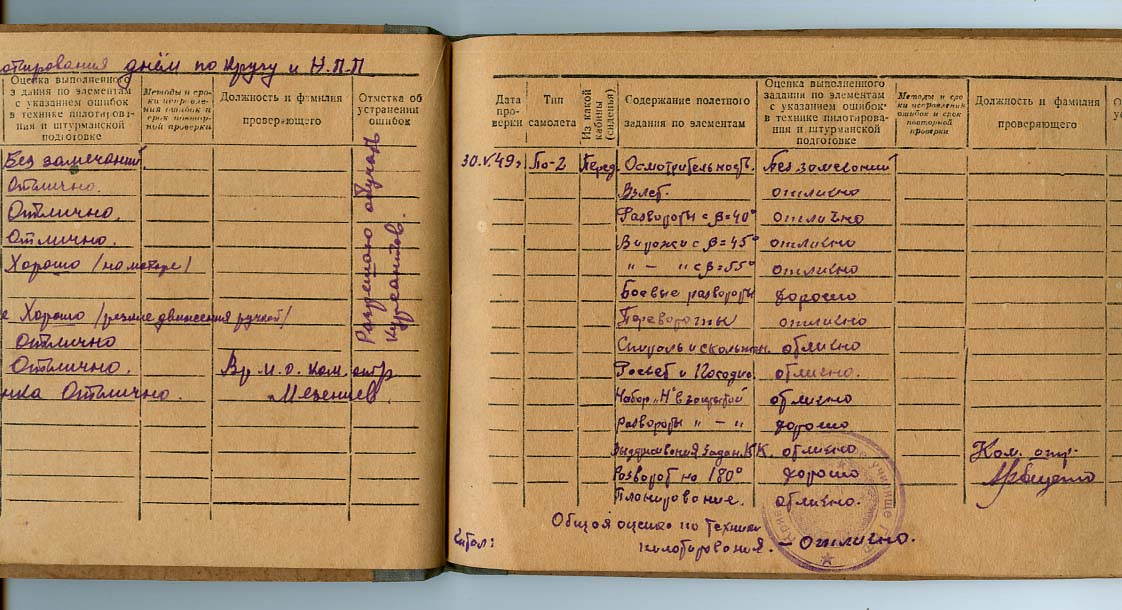 отирования днём по Кругу и Н.П.П
Оценка выполненного
задания по элементам
с указанием ошибок
в технике пилотирова-
ния и штурманской
подготовке
Методы и сро-
ки исправле-
ния ошибок и
срок повтор-
ной проверки
Должность и фамилия
проверяющего
Отметка об
устранении
ошибок
Без замечаний
Отлично.
Отлично.
Отлично.
Хорошо /на моторе/
е Хорошо /резкие движения ручкой/
Отлично
Отлично.
нка Отлично.
Вр.и.о. ком. отр
Мезенцев.
Разрешаю обучать
курсантов.
Дата
про-
верки
Тип
самолета
Из какой
кабины
(сиденья)
Содержание полетного
задания по элементам
Оценка выполненного
задания по элементам
с указанием ошибок
в технике пилотирова-
ния и штурманской
подготовке
Методы и сро-
ки исправления
ошибок и срок
повторной
проверки
Должность и фамилия
проверяющего
30.V.49г По-2 Перед. Осмотрительность. Без замечаний
Взлет. отлично
Развороты с β=40° отлично
Виражи с β=45° отлично
" — " с β=55° отлично
Боевые развороты хорошо
Перевороты отлично
Спираль и скольжен. отлично
Расчет и Посадка. отлично.
Набор "Н" в закрытой отлично
Развороты " — " хорошо
Выдерживания задан. КК. отлично
Разворот на 180° хорошо
Планирование. отлично.
Ком. отр.
Общая оценка по технике
пилотирования. — Отлично.
Читал:
училище